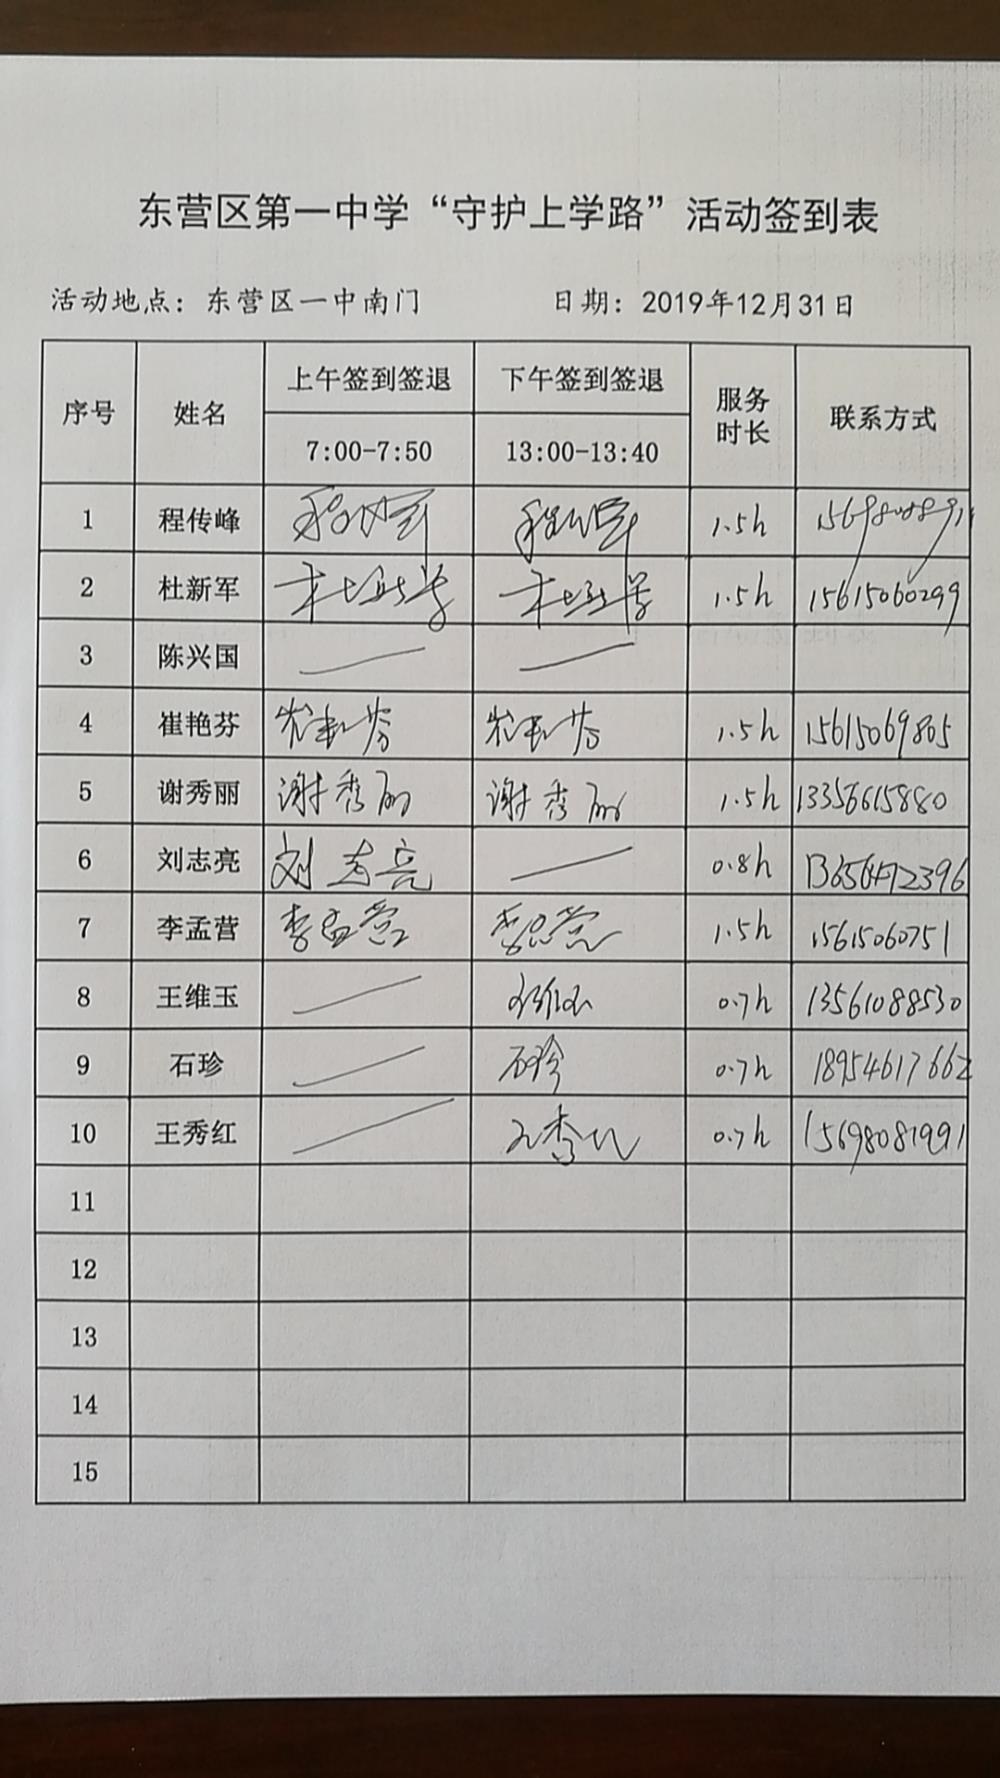 东营区第一中学“守护上学路”活动签到表
活动地点：东营区一中南门 日期：2019年12月31日
序号 姓名 上午签到签退 下午签到签退 服务时长 联系方式
7:00-7:50 13:00-13:40
1 程传峰 程传峰 程传峰 1.5h
2 杜新军 1.5h 15615060299
3 陈兴国 — —
4 崔艳芬 崔艳芬 崔艳芬 1.5h 15615069805
5 谢秀丽 谢秀丽 谢秀丽 1.5h 13356615880
6 刘志亮 刘志亮 — 0.8h 13656472396
7 李孟营 李孟营 李孟营 1.5h 15615060751
8 王维玉 — 王维玉 0.7h 13561088530
9 石珍 — 石珍 0.7h 18954617662
10 王秀红 — 王秀红 0.7h 15698081991
11
12
13
14
15